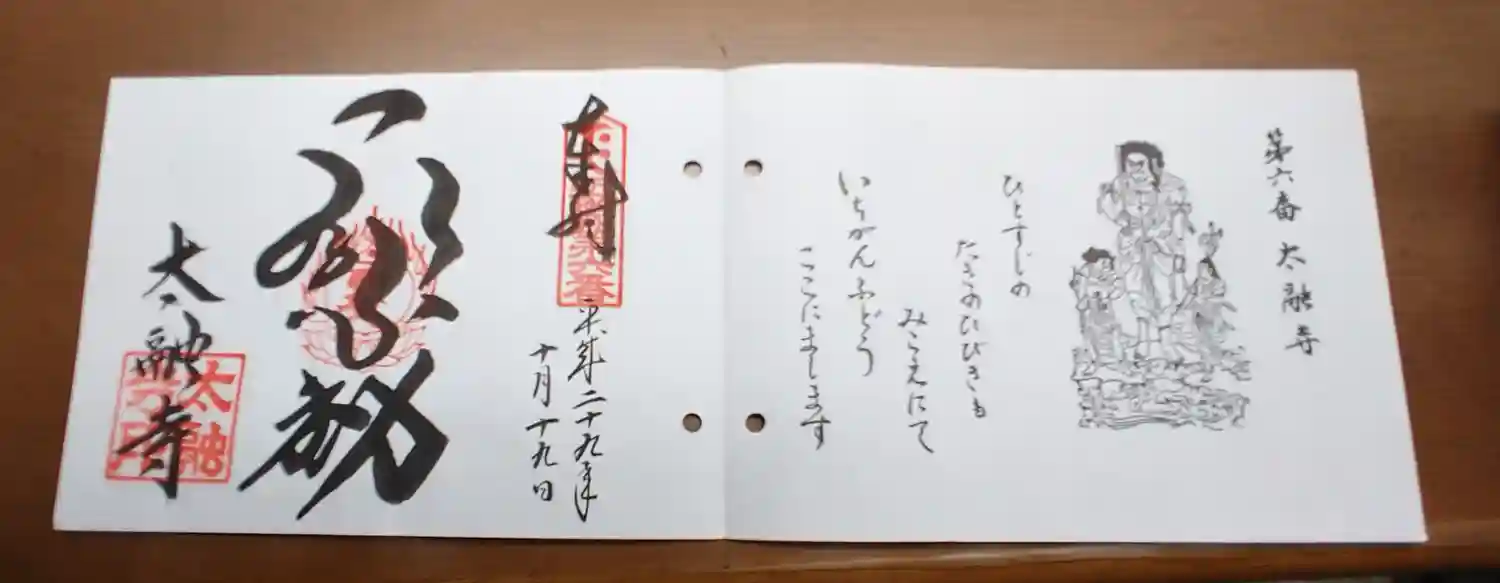 第六番 太融寺
ひとすじの
たきのひびきも
みこえにて
いちがんふどう
ここにまします
奉拝
平成二十九年
十月十九日
太融寺
太融寺印